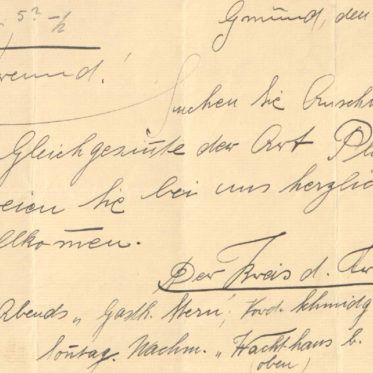 Gmünd, den
reund!
Suchen Sie Anschl
Gleichgesinnte der Art Pl
eien Sie bei uns herzlic
llkom̄en.
Der Kreis d. Fr
Abends „Gasth. Stern", Vord. Schmidg
Son̄tag. Nachm. „Wachthaus b.
(oben)